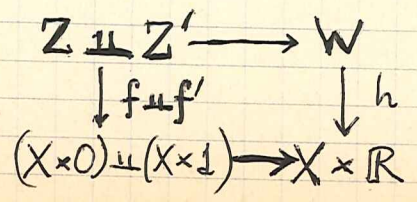 Z ⨿ Z' ⟶ W
↓ f⨿f' ↓ h
(X×0) ⨿ (X×1) ⟶ X × ℝ